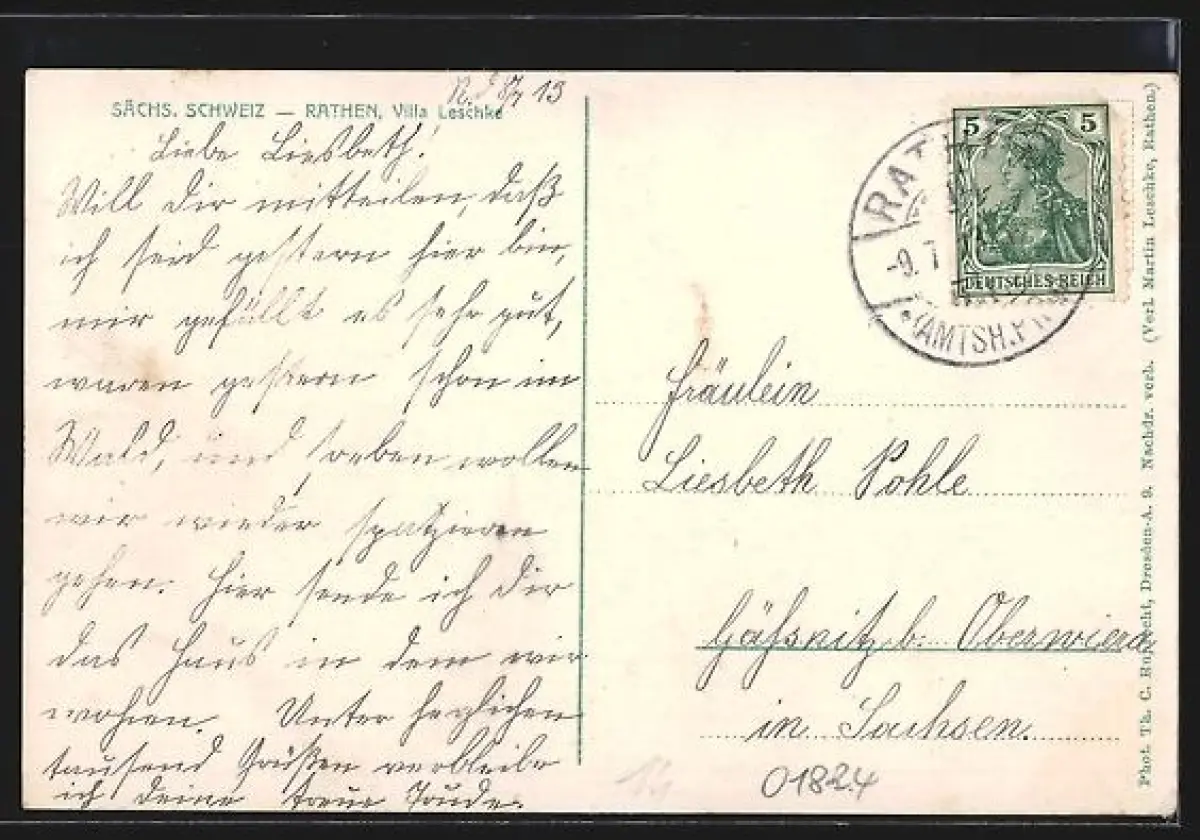 N. d. 8/7 13
SÄCHS. SCHWEIZ — RATHEN, Villa Leschke
Liebe Liesbeth!
Will Dir mitteilen, daß
ich seid gestern hier bin,
mir gefällt es sehr gut,
waren gestern schon im
Wald, und soeben wollen
wir wieder spatzieren
gehen. Hier sende ich Dir
das Haus in dem wir
wohnen. Unter herzlichen
tausend Grüßen verbleibe
ich Deine treue
5 5
DEUTSCHES REICH
RAT
-9. 7
(AMTSH.P
Fräulein
Liesbeth Pohle
Gäßnitz b. Oberwiera
in Sachsen.
01824
Phot. Th. C. Ruprecht, Dresden-A. 9. Nachdr. verb. (Verl. Martin Leschke, Rathen.)